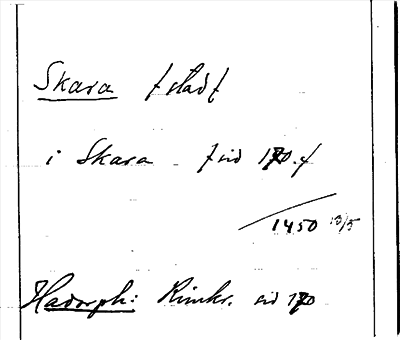 Skara f stad f
i Skara f sid 170. f
1450 13/5
Hadorph: Rimkr. sid 170